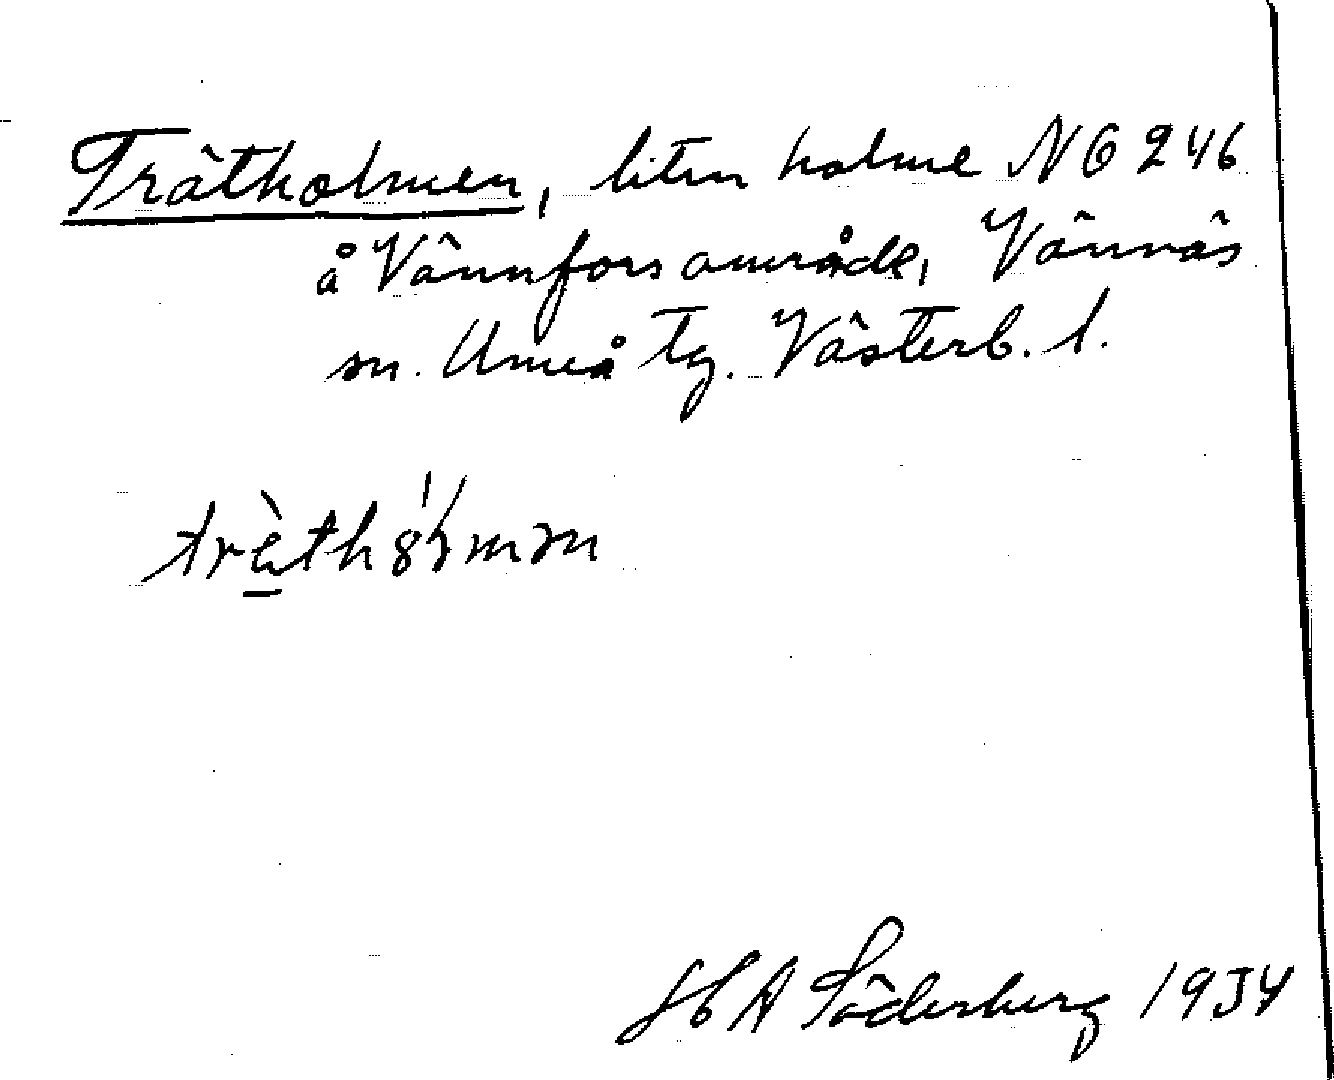 Trätholmen, liten holme NO 246
å Vännforsområde, Vännäs
sn. Umeå tg. Västerb. l.
H A Söderberg 1934